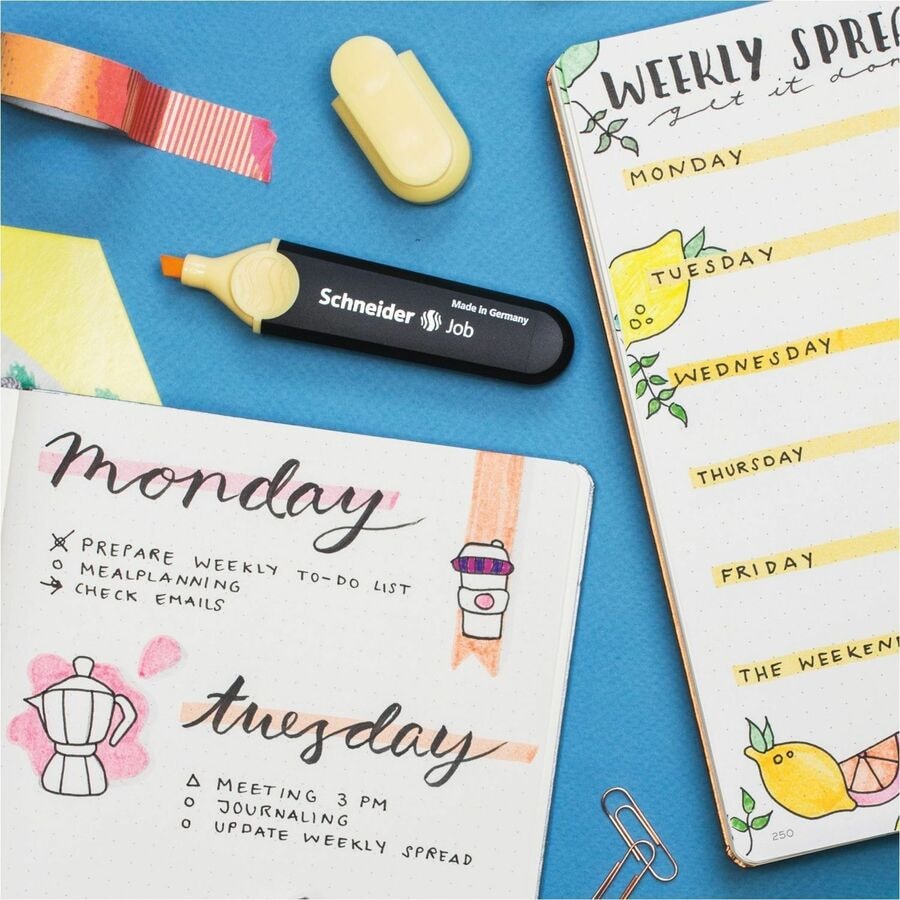 WEEKLY SPREA
get it don
MONDAY
TUESDAY
WEDNESDAY
THURSDAY
FRIDAY
THE WEEKEN
250
Schneider Job
Made in Germany
monday
PREPARE WEEKLY TO-DO LIST
MEALPLANNING
CHECK EMAILS
tuesday
MEETING 3 PM
JOURNALING
UPDATE WEEKLY SPREAD